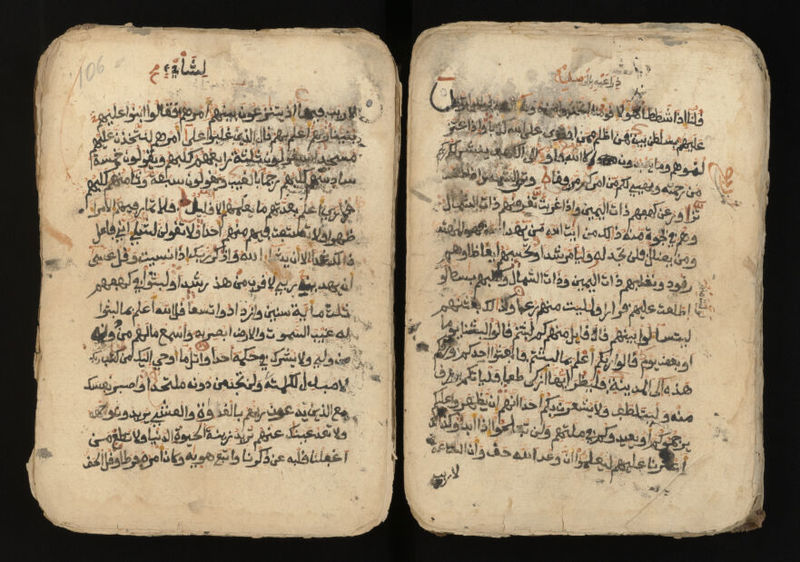 قلنا اذا شططا هؤلاء قومنا اتخذوا من دونه الهة لولا ياتون
عليهم بسلطن بين فمن اظلم ممن افترى على الله كذبا واذ اعتز
لتموهم وما يعبدون الا الله فاوا الى الكهف ينشر لكم
من رحمته ويهيئ لكم من امركم مرفقا وترى الشمس اذا طلعت
تزاور عن كهفهم ذات اليمين واذا غربت تقرضهم ذات الشمال
وهم في فجوة منه ذالك من ايت الله من يهد الله فهو المهتد
ومن يضلل فلن تجد له وليا مرشدا وتحسبهم ايقاظا وهم
رقود ونقلبهم ذات اليمين وذات الشمال وكلبهم بسط لو
اطلعت عليهم فرارا ولملئت منهم رعبا وكذالك بعثنهم
ليتساءلوا بينهم قال قايل منهم كم لبثتم قالوا لبثنا يوما
او بعض يوم قالوا ربكم اعلم بما لبثتم فابعثوا احدكم بورقكم
هذه الى المدينة فلينظر ايها ازكى طعاما فلياتكم برزق
منه وليتلطف ولا يشعرن بكم احدا انهم ان يظهروا عليكم
يرجموكم او يعيدوكم في ملتهم ولن تفلحوا اذا ابدا وكذالك
اعثرنا عليهم ليعلموا ان وعد الله حق وان الساعة
لا ريب
106
لا ريب فيها اذ يتنزعون بينهم امرهم فقالوا ابنوا عليهم
بنينا ربهم اعلم بهم قال الذين غلبوا على امرهم لنتخذن عليهم
مسجدا سيقولون ثلثة رابعهم كلبهم ويقولون خمسة
سادسهم كلبهم رجما بالغيب ويقولون سبعة وثامنهم كلبهم
قل ربي اعلم بعدتهم ما يعلمهم الا قليل فلا تمار فيهم الا مراء
ظهرا ولا تستفت فيهم منهم احدا ولا تقولن لشاىء اني فاعل
ذالك غدا الا ان يشاء الله واذكر ربك اذا نسيت وقل عسى
ان يهدين ربي لاقرب من هذا رشدا ولبثوا في كهفهم
ثلث ماية سنين وازدادوا تسعا قل الله اعلم بما لبثوا
له غيب السموت والارض ابصر به واسمع ما لهم من دونه
من ولي ولا يشرك في حكمه احدا واتل ما اوحي اليك من كتاب ربك
لا مبدل لكلمته ولن تجد من دونه ملتحدا واصبر نفسك
مع الذين يدعون ربهم بالغدوة والعشي يريدون وجهه
ولا تعد عينك عنهم تريد زينة الحيوة الدنيا ولا تطع من
اغفلنا قلبه عن ذكرنا واتبع هويه وكان امره فرطا وقل الحق